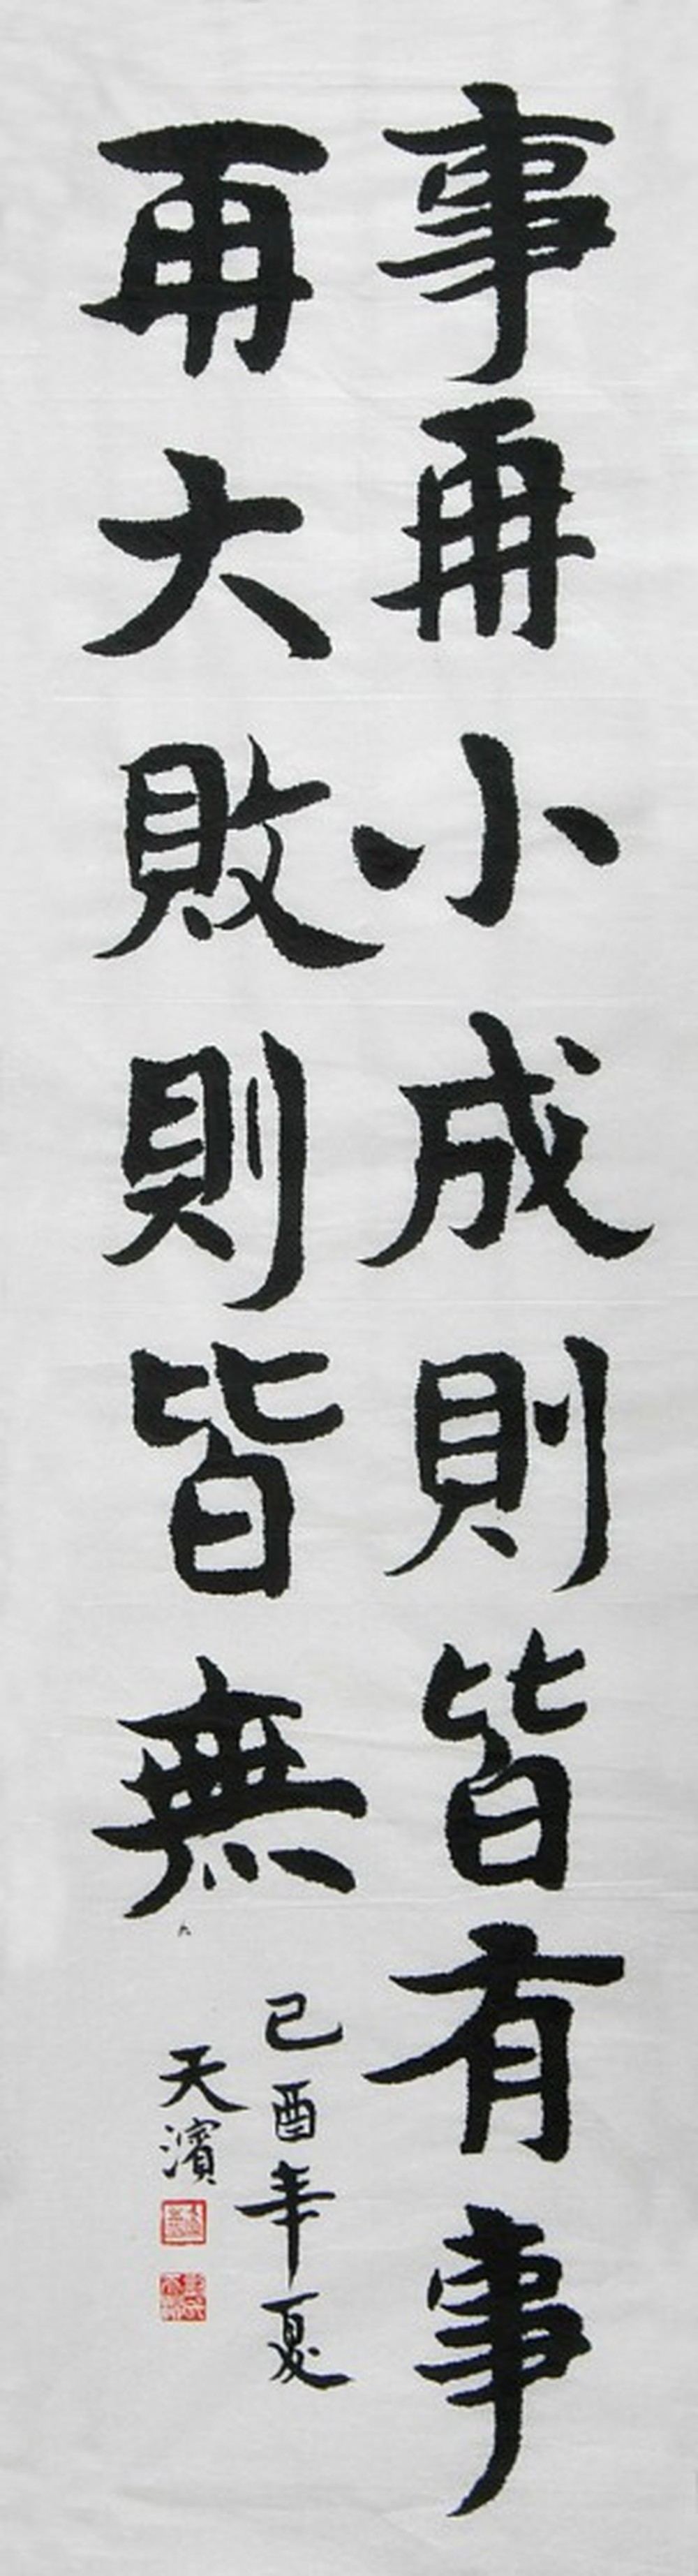 事再小成則皆有事
再大敗則皆無
己酉年夏
天濱